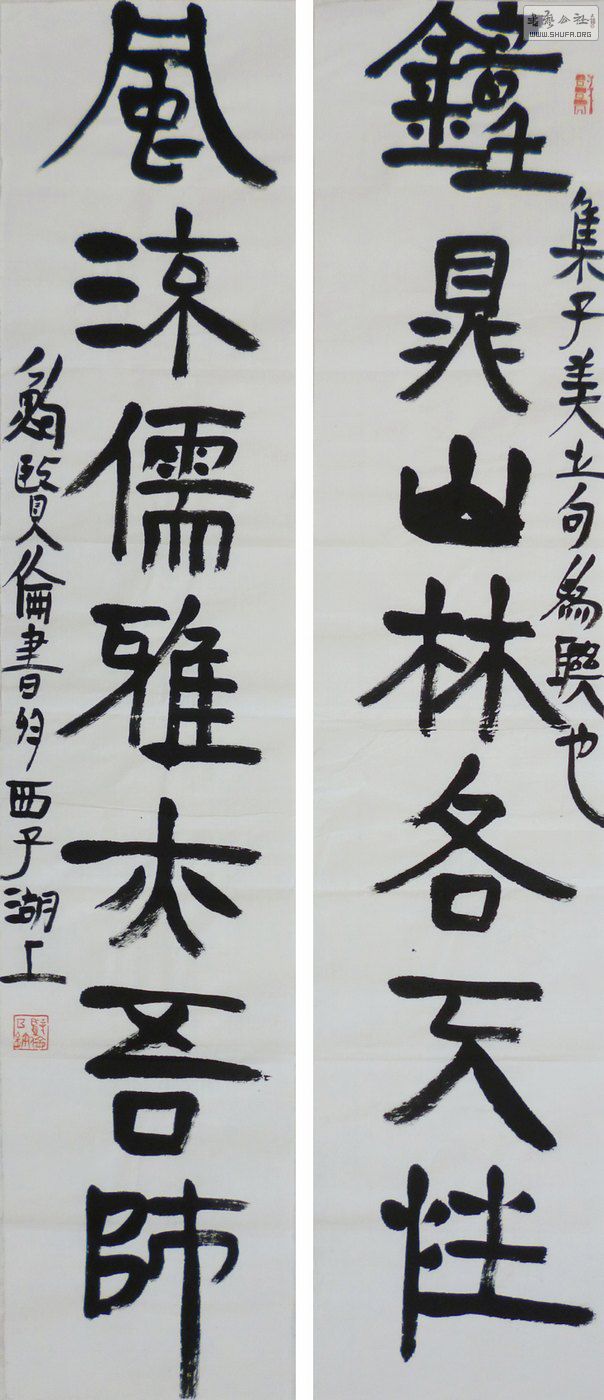 鐘鼎山林各天性
集子美之句為聯也
風流儒雅亦吾師
賢倫書於西子湖上
书艺公社
WWW.SHUFA.ORG